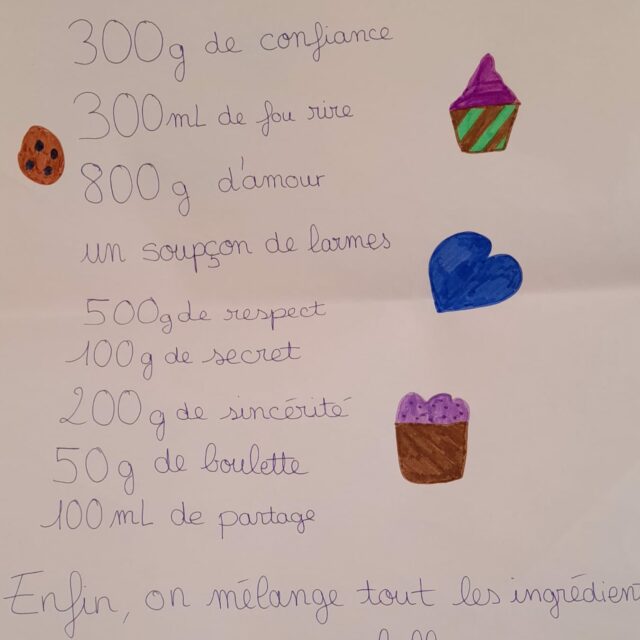 300g de confiance
300mL de fou rire
800g d'amour
un soupçon de larmes
500g de respect
100g de secret
200g de sincérité
50g de boulette
100mL de partage
Enfin, on mélange tout les ingrédien